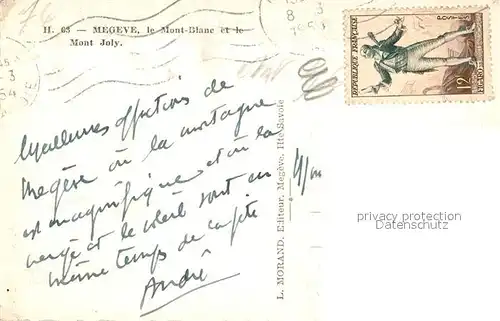 H. 63 — MEGEVE, le Mont-Blanc et le
Mont Joly.
8
3
REPUBLIQUE FRANÇAISE
POSTES
12F
FIGARO
Meilleures affections de
Megève où la montagne
est magnifique et où la
neige et le soleil sont en
même temps de la fête
André
L. MORAND, Editeur, Megève, Hte-Savoie
privacy protection
Persönlichkeitsschutz